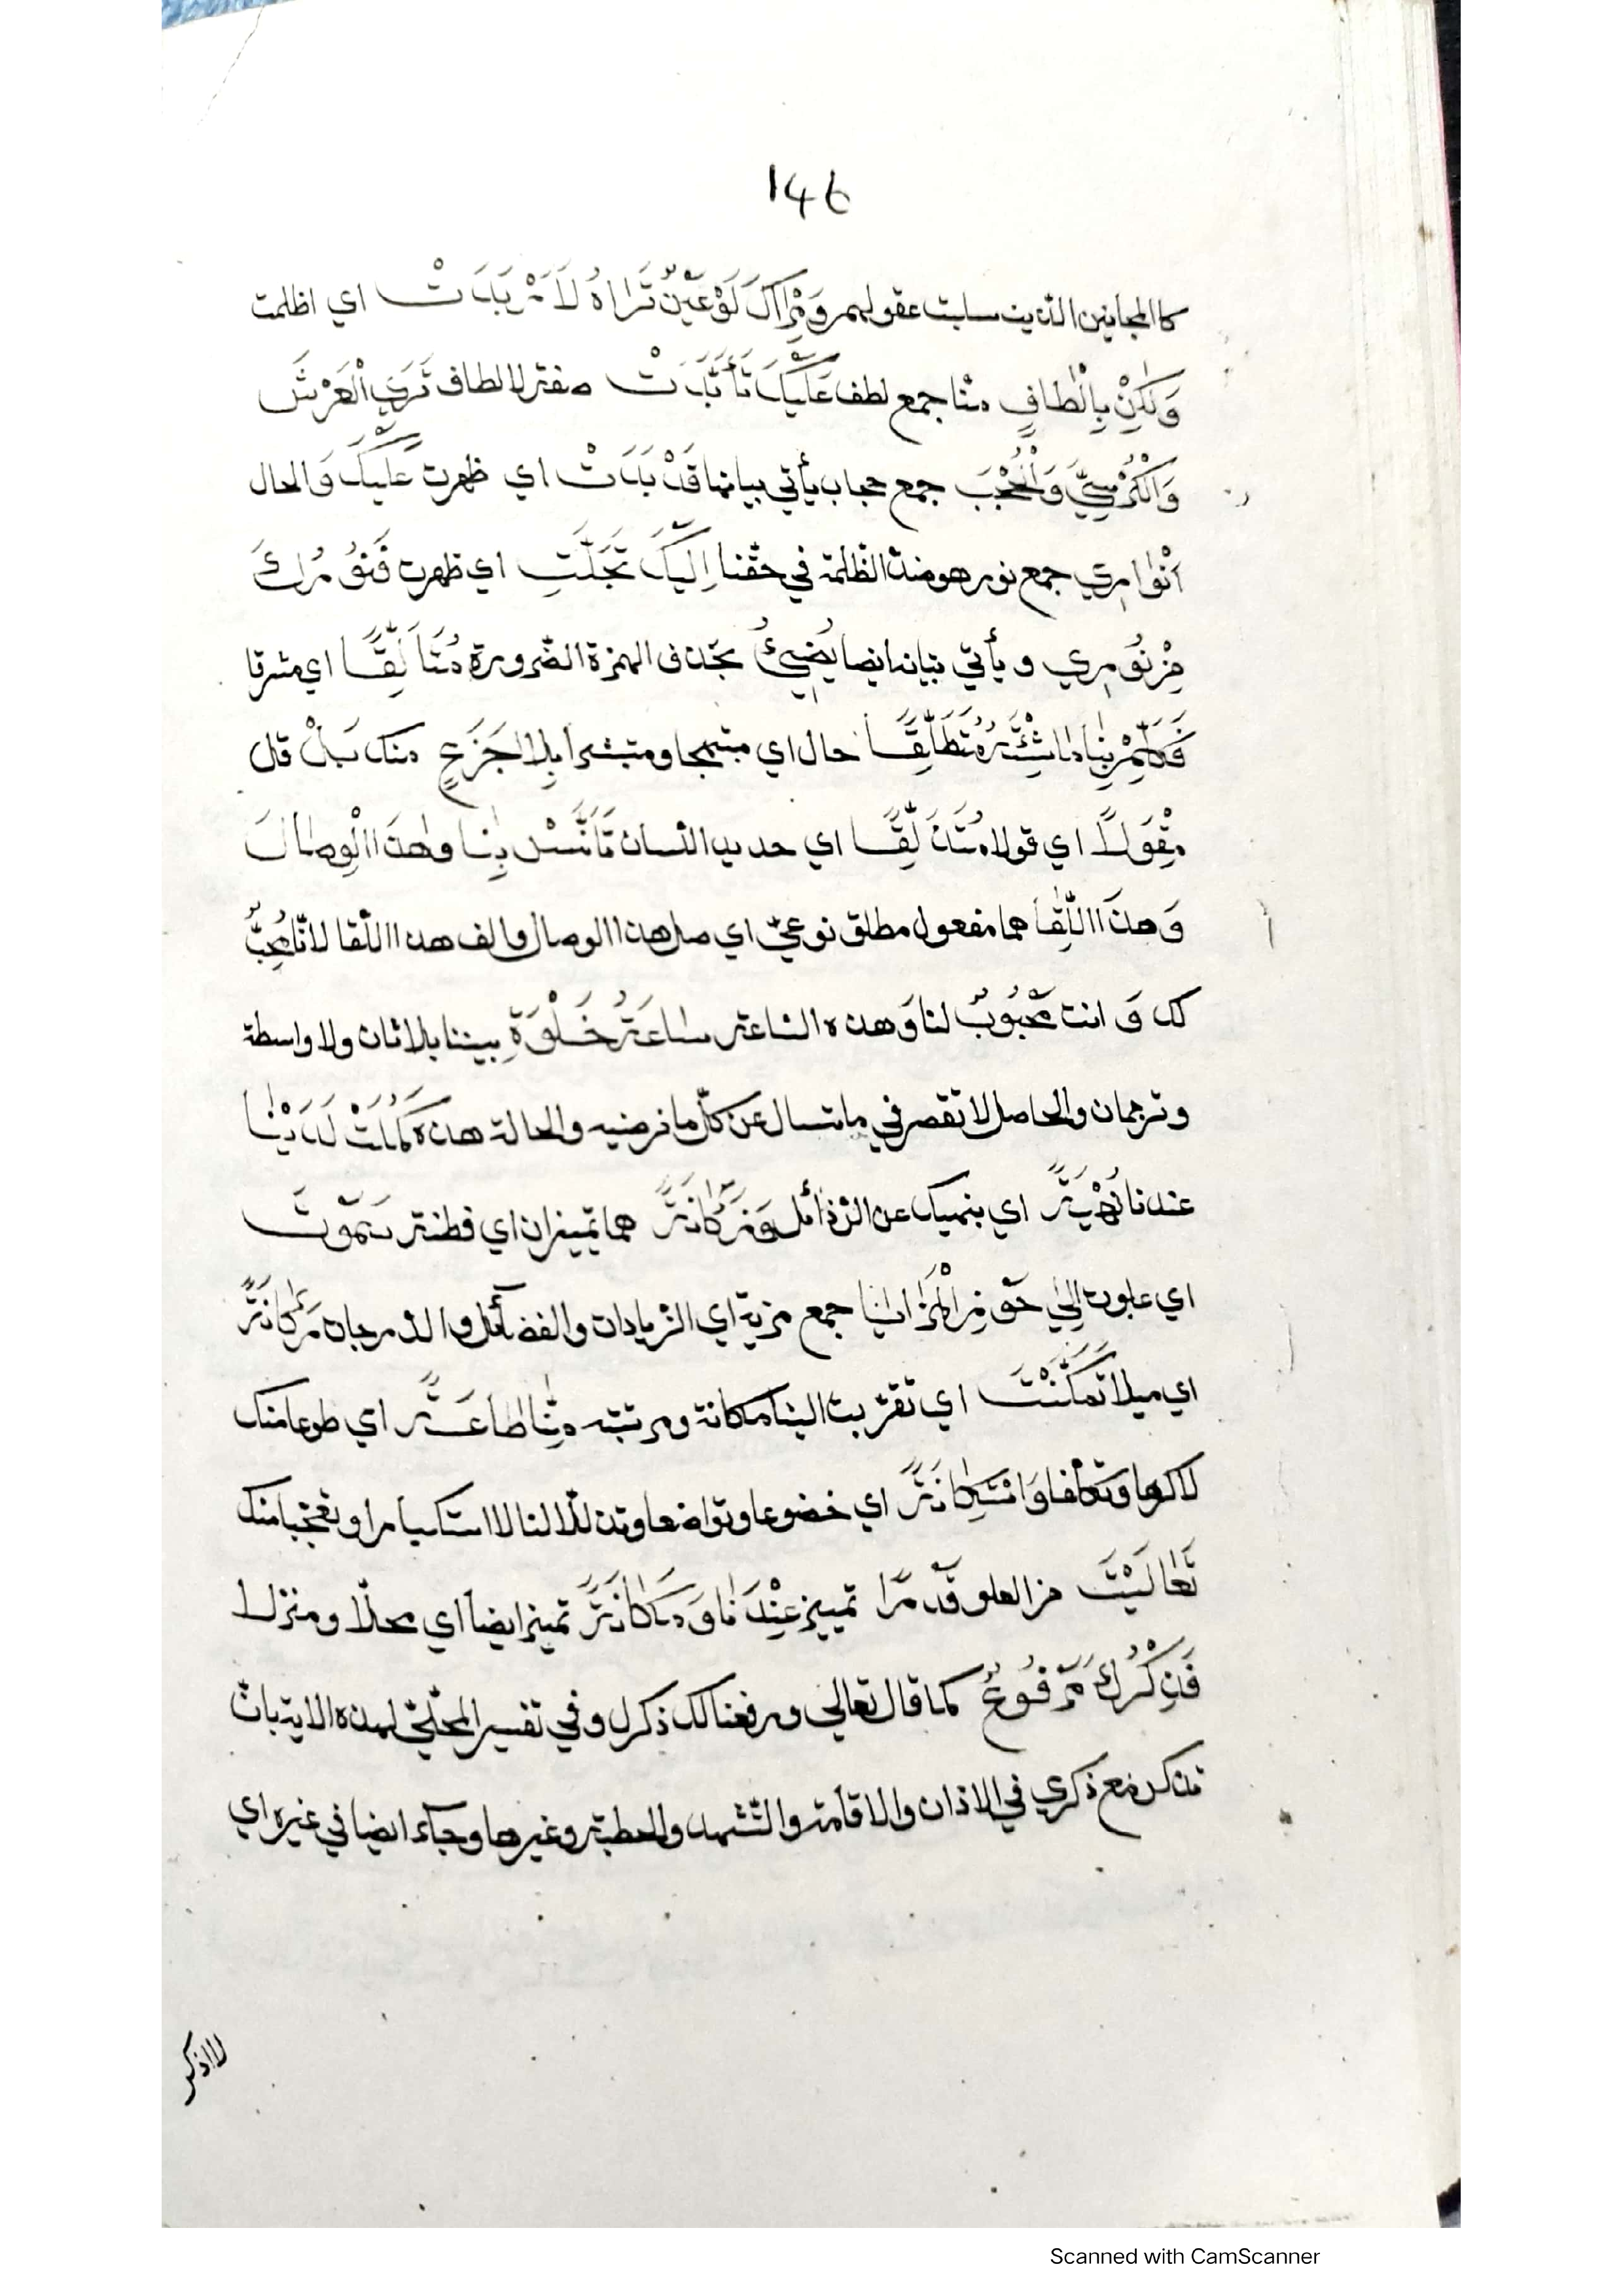 146
كالمجانين الذين سلبت عقولهم وَمَرْآكَ لَوْ عَيْنٌ تَرَاهُ لَأَرْبَدَتْ اي اظلمت
وَلٰكِنْ بِأَلْطَافٍ منا جمع لطف عَلَيْكَ تَأَبَّدَتْ صفة لالطاف تَرَى الْعَرْشَ
وَالْكُرْسِيَّ وَالْحُجْبَ جمع حجاب يأتي بيانها قَدْ بَدَتْ اي ظهرت عَلَيْكَ وَالحال
أَنْوَارِي جمع نور هو ضد الظلمة في حقنا إِلَيْكَ تَجَلَّتِ اي ظهرت فَنُورُكَ
مِنْ نُورِي و يأتي بيانه ايضا يُضِيئُ بحذف الهمزة الضرورة مُتَأَلِّقًا اي مشرقا
فَكَلِّمْ بِنَا مَا شِئْتَهُ مُتَطَلِّقًا حال اي مبتهجا ومتبشرا بِلَا جَزَعٍ منك بَلْ قال
مِقْوَلًا اي قولا مُتَذَلِّقًا اي حديد اللسان تَأَنَّسْ بِنَا وهٰذَا الْوِصَالَ
وَهٰذَا اللِّقَا هما مفعول مطلق نوعيّ اي صل هذا الوصال والف هذا اللقا لانا مُحِبٌّ
لك وَ انت مَحْبُوبٌ لنا وَهذه الساعة سَاعَةُ خَلْوَةِ بيننا بلا ثان ولا واسطة
وترجمان والحاصل لا تقصر في ما تسال عن كلّ ما ترضيه والحالة هذه كَمُلَتْ لَدَيْنَا
عندنا نُهْيَةً اي ينهيك عن الرّذائل وَزَكَانَةً هما تميزان اي فطنة سَمَوْتَ
اي علوت إِلَى حَقِّ مِنَ الْمَزَايَا جمع مزية اي الزيادات والفضآئل والدرجات رَكَانَةً
اي ميلا تَمَكَّنْتَ اي تقرّبت الينا مكانة ومرتبه مِنَّا طَاعَةً اي طوعا منك
لا كرها وتكلفا وَاسْتِكَانَةً اي خضوعا وتواضعا وتذللا لنا لا استكبارا وتعجبا منك
تَعَالَيْتَ من العلو قَدْرًا تمييز عِنْدَنَا وَمَكَانَةً تميز ايضا اي محلا ومنزلا
فَذِكْرُكَ مَرْفُوعٌ كما قال تعالى ورفعنا لك ذكرك وفي تفسير المحلّيّ لهذه الاية بان
تذكر مع ذكري في الاذان والاقامة والتشهد والخطبة وغيرها وجآء ايضا في غيره اي
لا اذكر
Scanned with CamScanner